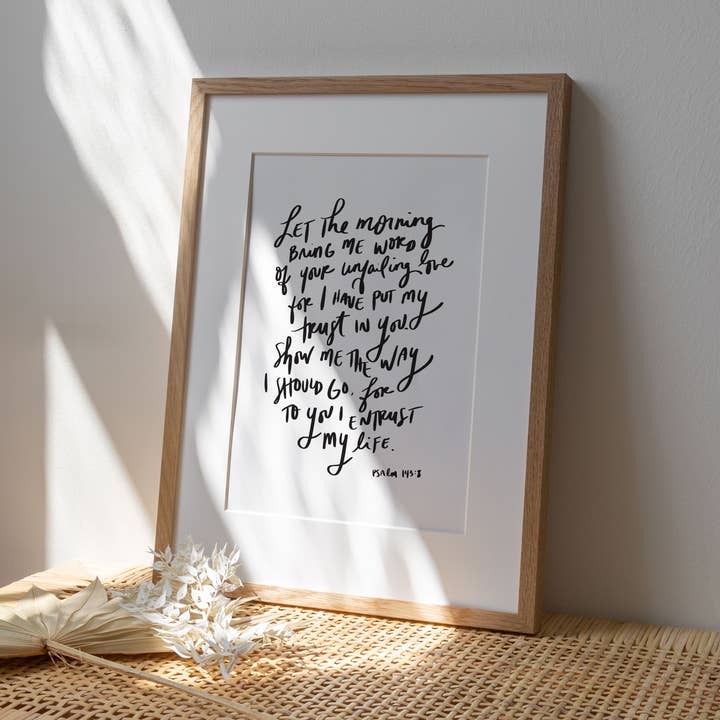 LET The morning
BRING ME WORD
of your unfailing love
for I HAVE PUT MY
trust IN you.
Show ME THE WAY
I SHOULD GO, for
TO you I ENTRUST
My LIFE.
PSALM 143:8